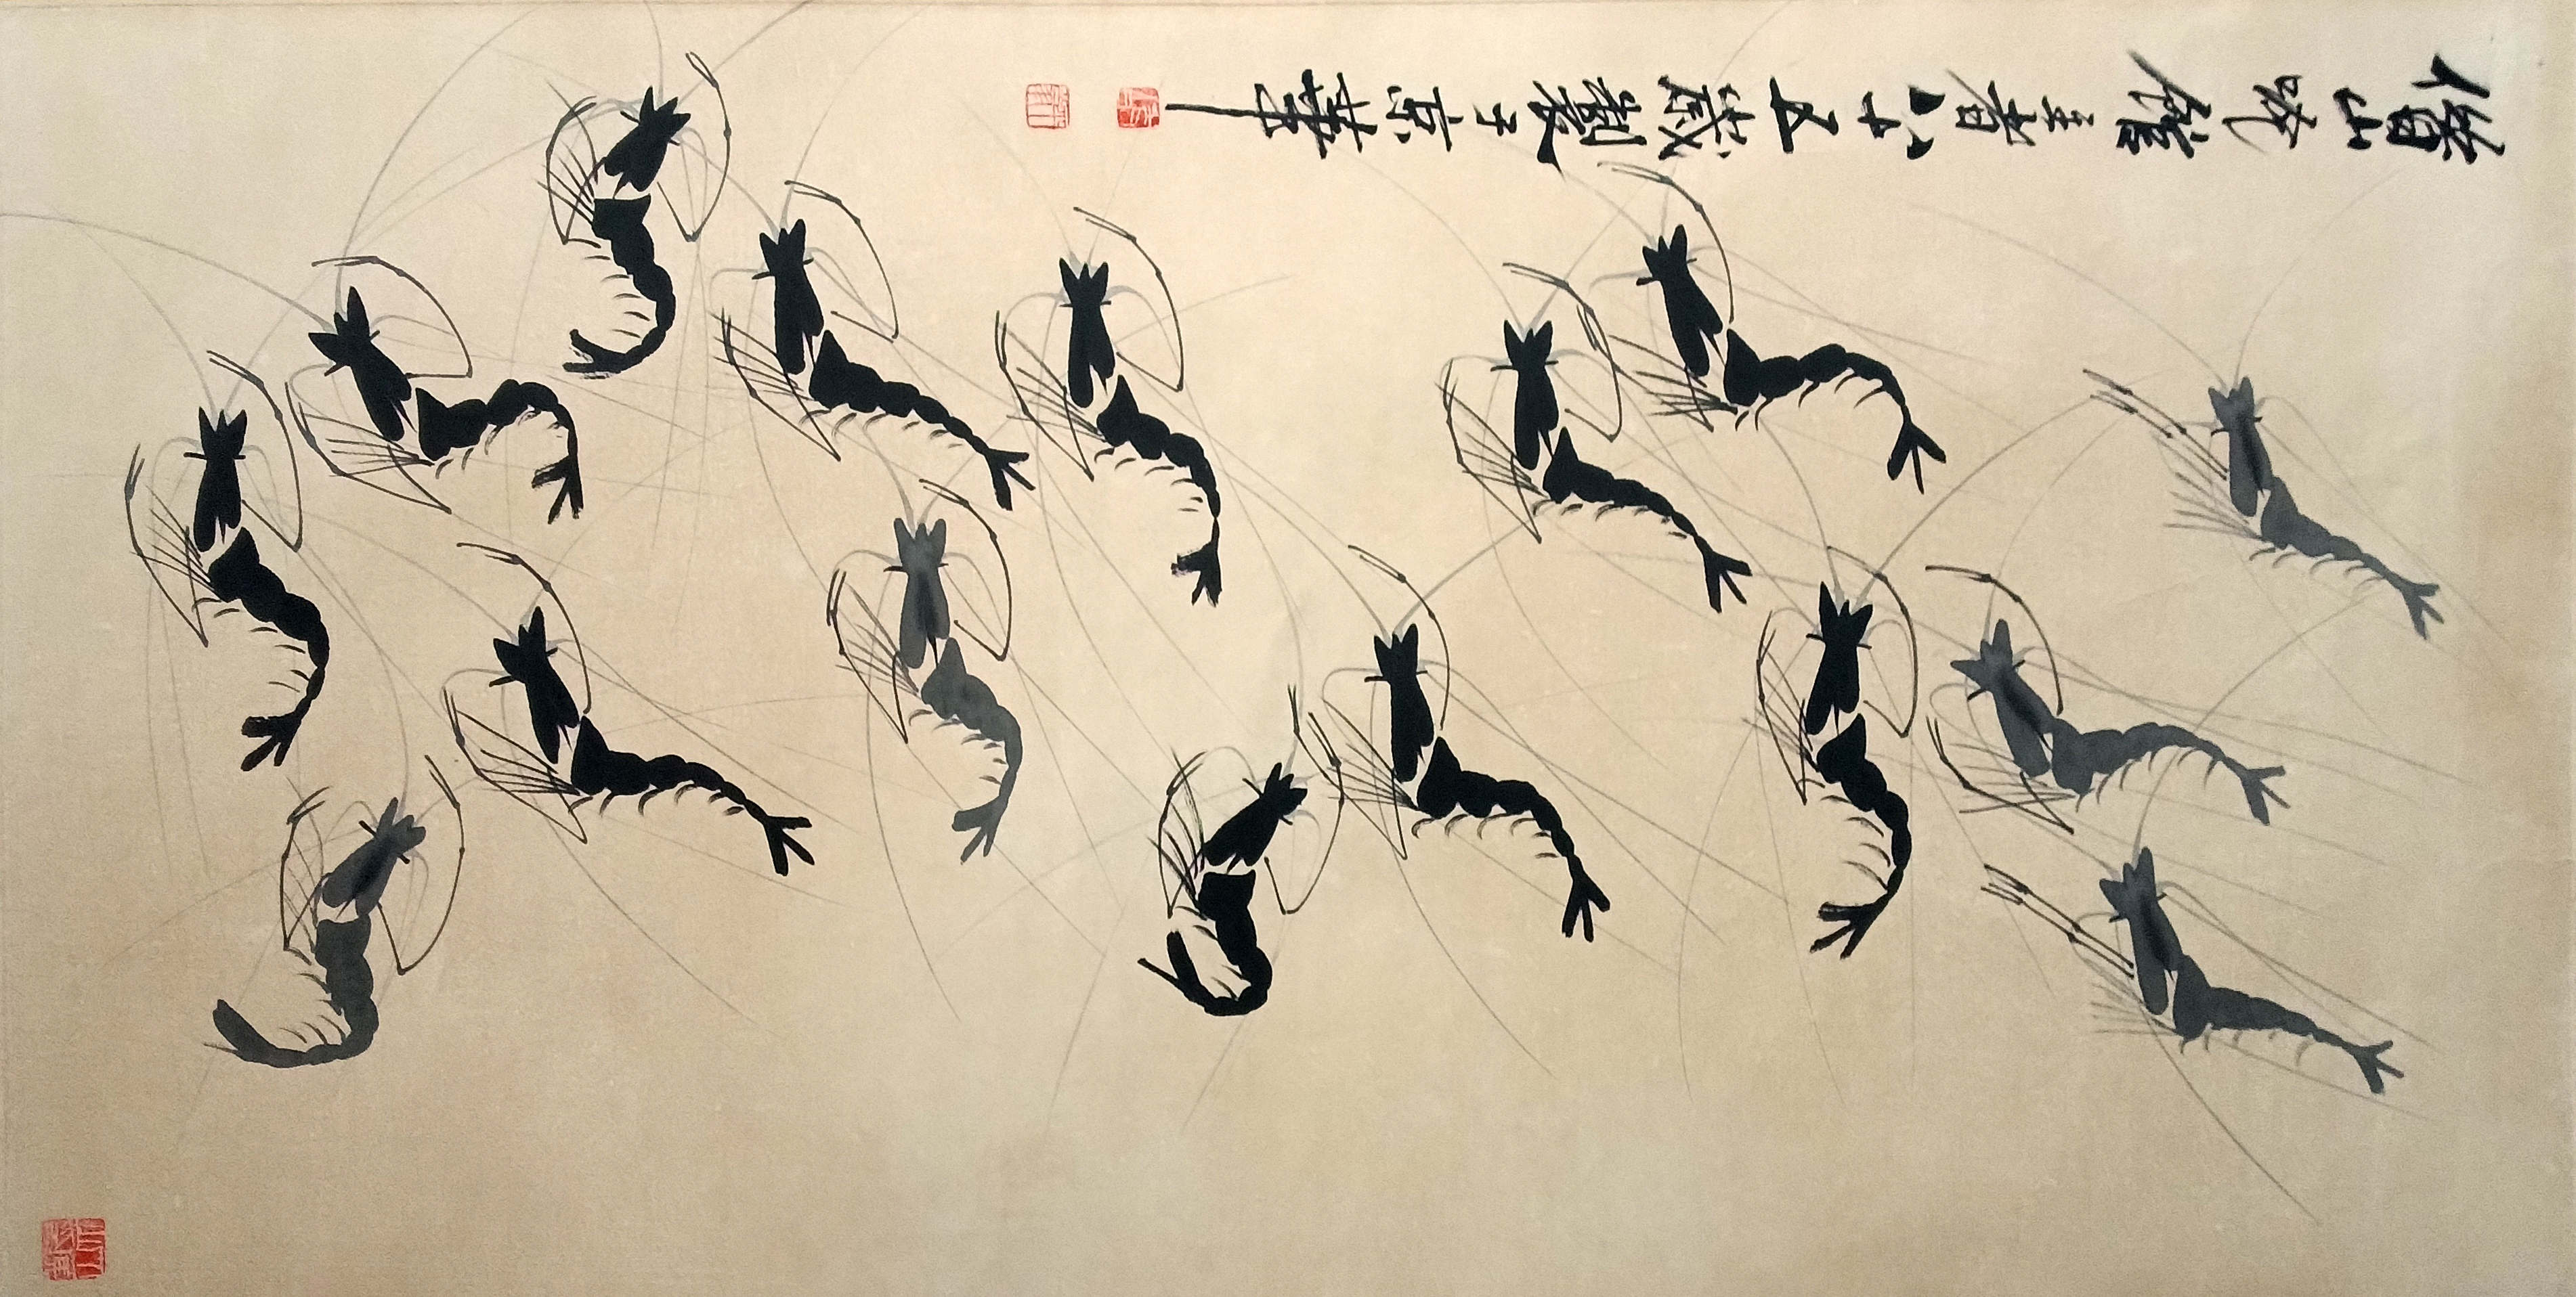 借山吟館主者八十五歲製于京華